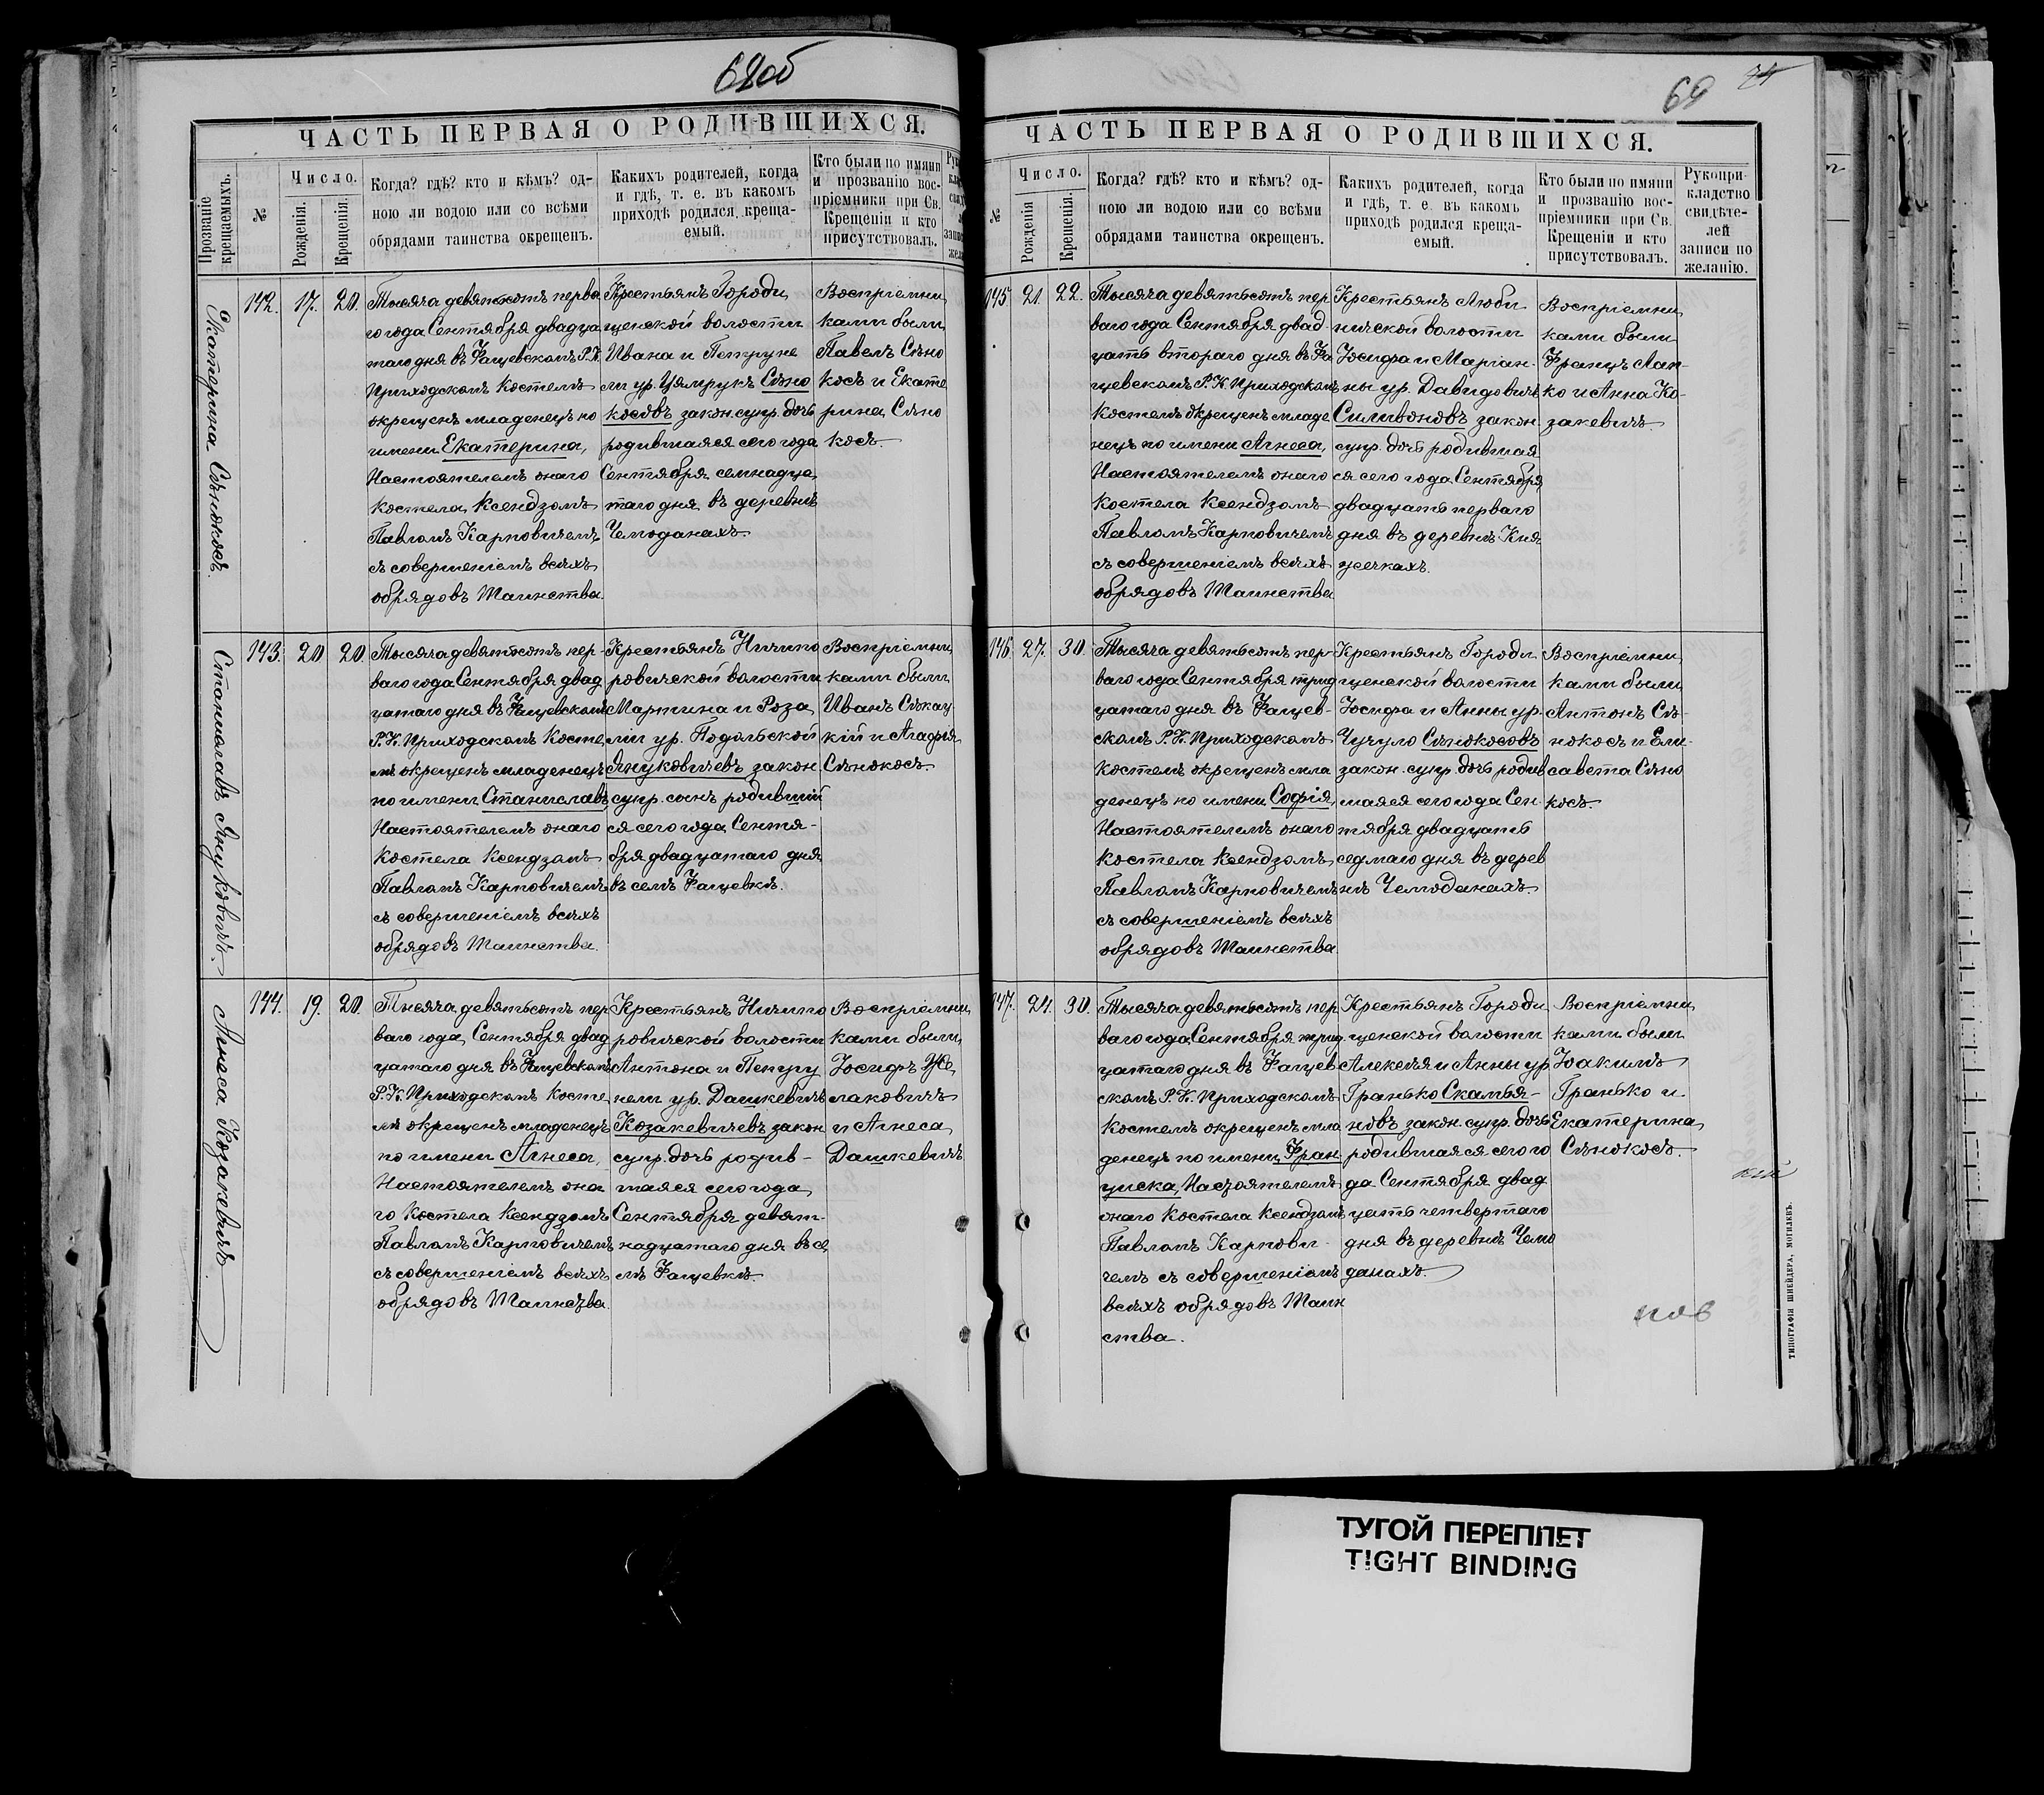 68об
ЧАСТЬ ПЕРВАЯ О РОДИВШИХСЯ.
Прозваніе крещаемыхъ.
№
Число.
Рожденія.
Крещенія.
Когда? гдѣ? кто и кѣмъ? од-
ною ли водою или со всѣми
обрядами таинства окрещенъ.
Какихъ родителей, когда
и гдѣ, т. е. въ какомъ
приходѣ родился креща-
емый.
Кто были по имяни
и прозванію вос-
пріемники при Св.
Крещеніи и кто
присутствовалъ.
Екатерина Сѣнокосъ.
142. 17. 20.
Тысяча девятьсотъ перва
го года Сентября двадца
таго дня въ Фащевскомъ Р.К.
Приходскомъ Костелѣ
окрещенъ младенецъ по
имени Екатерина,
Настоятелемъ онаго
костела Ксендзомъ
Павломъ Карповичемъ
съ совершеніемъ всѣхъ
обрядовъ Таинства.
Крестьянъ Городи
щенской волости
Ивана и Петруне
ли ур. Цямрукъ Сѣно
косовъ закон. супр. дочь
родившаяся сего года
Сентября семнадца
таго дня въ деревнѣ
Чемоданахъ.
Воспріемни
ками были
Павелъ Сѣно
косъ и Екате
рина Сѣно
косъ.
Станиславъ Януковичъ.
143. 20 20.
Тысяча девятьсотъ пер-
ваго года Сентября двад
цатаго дня въ Фащевскомъ
Р.К. Приходскомъ Косте
лѣ окрещенъ младенецъ
по имени Станиславъ,
Настоятелемъ онаго
Костела Ксендзомъ
Павломъ Карповичемъ
съ совершеніемъ всѣхъ
обрядовъ Таинства.
Крестьянъ Ничипо
ровичской волости
Мартина и Роза
ліи ур. Подольской
Януковичевъ закон.
супр. сынъ родившій
ся сего года Сентя-
бря двадцатаго дня
въ селѣ Фащевкѣ.
Воспріемни
ками были
Иванъ Сѣкац
кій и Агафія
Сѣнокосъ.
Агнеса Козакевичъ
144. 19. 20.
Тысяча девятьсотъ пер
ваго года Сентября двад
цатаго дня въ Фащевскомъ
Р.К. Приходскомъ Косте
лѣ окрещенъ младенецъ
по имени Агнеса,
Настоятелемъ она
го Костела Ксендзомъ
Павломъ Карповичемъ
съ совершеніемъ всѣхъ
обрядовъ Таинства.
Крестьянъ Ничипо
ровичской волости
Антона и Петру
нели ур. Дашкевичъ
Козакевичевъ закон
супр. дочь родив-
шаяся сего года
Сентября девят-
надцатаго дня въ се
лѣ Фащевкѣ.
Воспріемни
ками были
Іосифъ Же
лаковичъ
и Агнеса
Дашкевичъ
69 74
ЧАСТЬ ПЕРВАЯ О РОДИВШИХСЯ.
№
Число.
Рожденія
Крещенія.
Когда? гдѣ? кто и кѣмъ? од-
ною ли водою или со всѣми
обрядами таинства окрещенъ.
Какихъ родителей, когда
и гдѣ, т. е. въ какомъ
приходѣ родился креща-
емый.
Кто были по имяни
и прозванію вос-
пріемники при Св.
Крещеніи и кто
присутствовалъ.
Рукопри-
кладство
свидѣте-
лей
записи по
желанію.
145 21. 22.
Тысяча девятьсотъ пер
ваго года Сентября двад-
цать втораго дня въ Фа
щевскомъ Р.К. Приходскомъ
Костелѣ окрещенъ младе
нецъ по имени Агнеса,
Настоятелемъ онаго
Костела Ксендзомъ
Павломъ Карповичемъ
съ совершеніемъ всѣхъ
обрядовъ Таинства
Крестьянъ Люби
ничской волости
Іосифа и Маріан-
ны ур. Давидовичъ
Силивоновъ закон
супр. дочь родившая
ся сего года Сентября
двадцать перваго
дня въ деревнѣ Кня
жечкахъ.
Воспріемни
ками были
Францъ Лап-
ко и Анна Ко-
закевичъ.
146. 27. 30.
Тысяча девятьсотъ пер-
ваго года Сентября трид
цатаго дня въ Фащев-
скомъ Р.К. Приходскомъ
Костелѣ окрещенъ мла
денецъ по имени Софія,
Настоятелемъ онаго
Костела Ксендзомъ
Павломъ Карповичемъ
съ совершеніемъ всѣхъ
обрядовъ Таинства.
Крестьянъ Городи
щенской волости
Іосифа и Анны ур.
Чучуло Сѣнокосовъ
закон. супр. дочь родив
шаяся сего года Сен-
тября двадцать
седмаго дня въ дерев
нѣ Чемоданахъ.
Воспріемни
ками были
Антонъ Сѣ-
нокосъ и Ели-
савета Сѣно
косъ.
147. 24. 30.
Тысяча девятьсотъ пер
ваго года Сентября трид
цатаго дня въ Фащев
скомъ Р.К. Приходскомъ
Костелѣ окрещенъ мла
денецъ по имени Фран
циска, Настоятелемъ
онаго Костела Ксендзомъ
Павломъ Карпови-
чемъ съ совершеніемъ
всѣхъ обрядовъ Таин
ства.
Крестьянъ Городи
щенской волости
Алексѣя и Анны ур
Гранько Скамья-
новъ закон. супр. дочь
родившаяся сего го
да Сентября двад
цать четвертаго
дня въ деревнѣ Чемо
данахъ.
Воспріемни
ками были
Іоакимъ
Гранько и
Екатерина
Сѣнокосъ.
ТИПОГРАФІЯ ШНЕЙДЕРА, МОГИЛЕВЪ.
ТУГОЙ ПЕРЕПЛЕТ
TIGHT BINDING